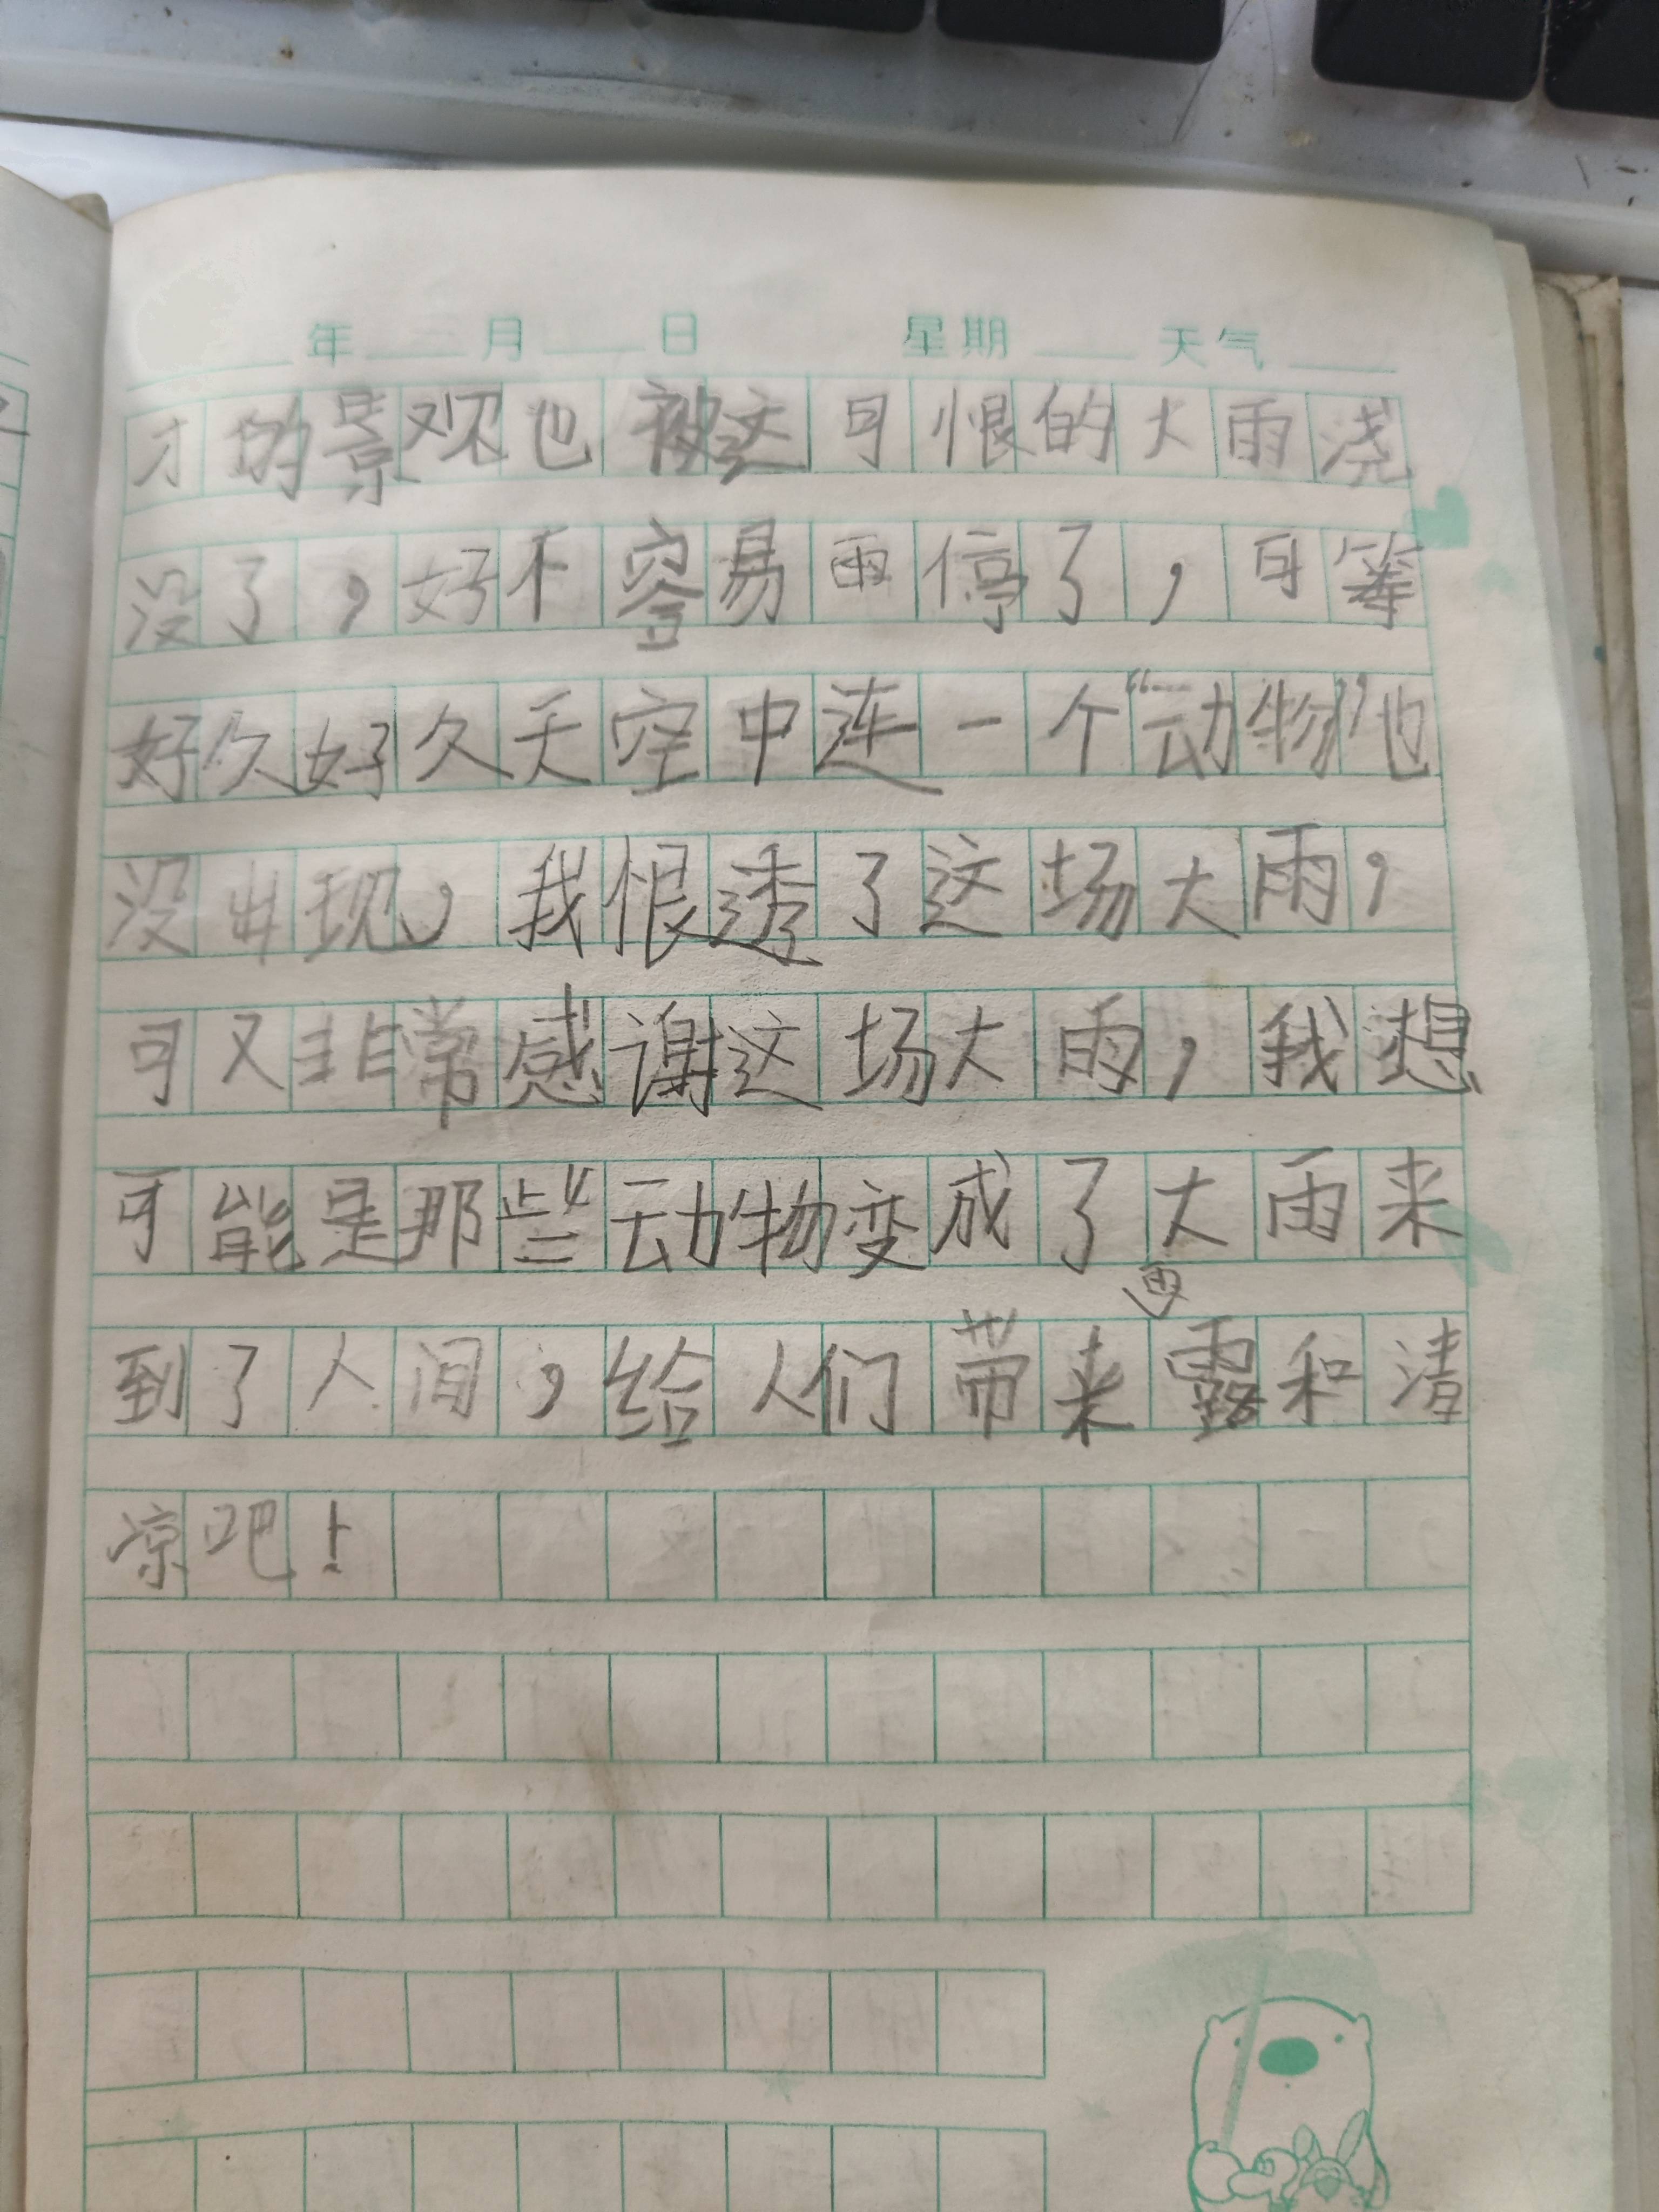 年 月 日 星期 天气
才的景观也被这可恨的大雨浇
没了，好不容易雨停了，可等
好久好久天空中连一个“动物”也
没出现，我恨透了这场大雨，
可又非常感谢这场大雨，我想
可能是那些“动物变成了大雨来
到了人间，给人们带来雨露和清
凉吧！